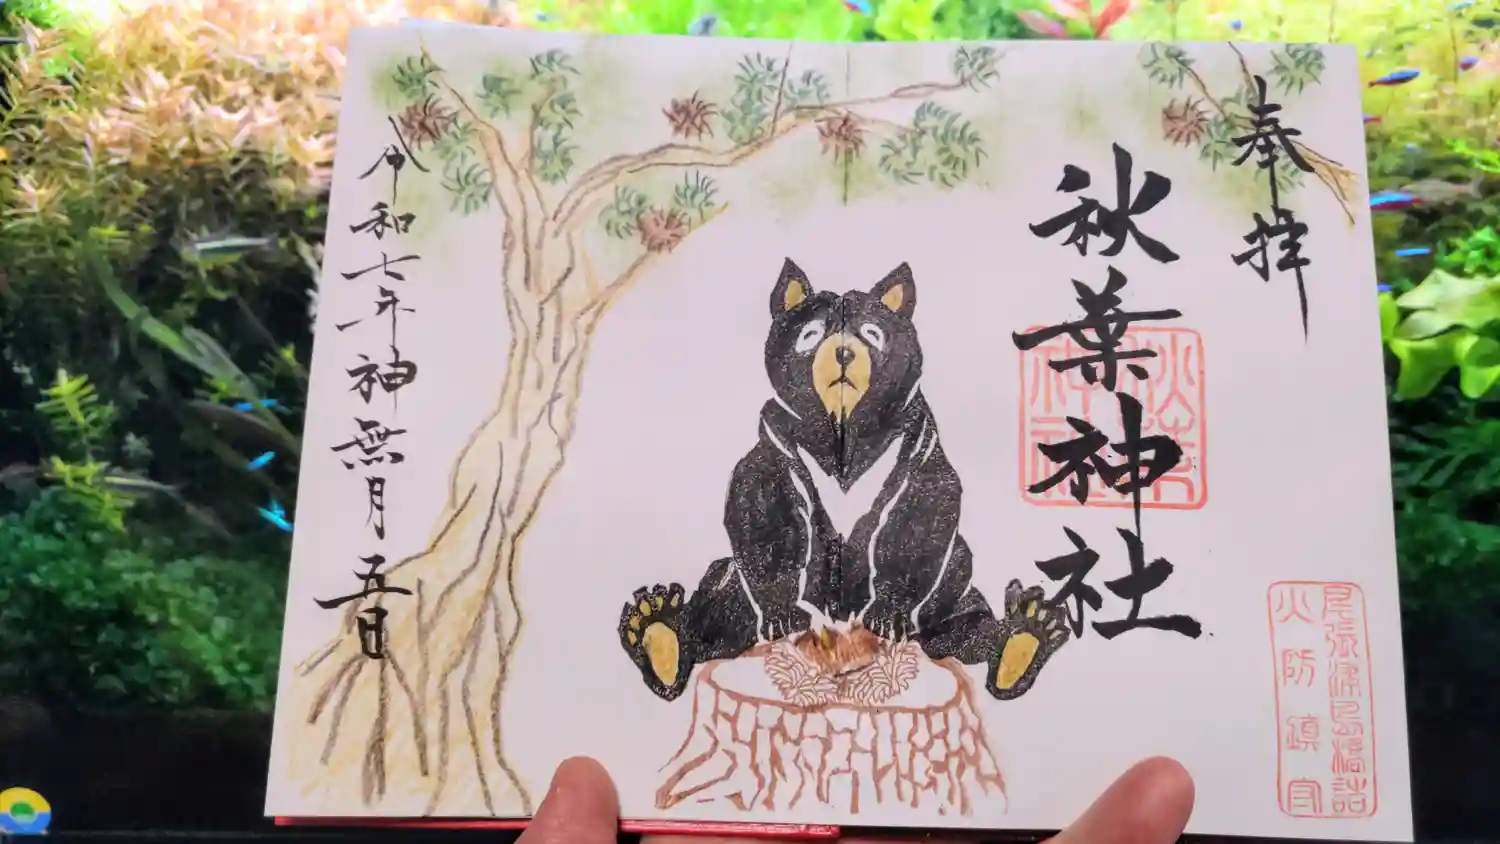 奉拝
秋葉神社
秋葉神社
尾張津島橋詰
火防鎮守
令和七年神無月五日